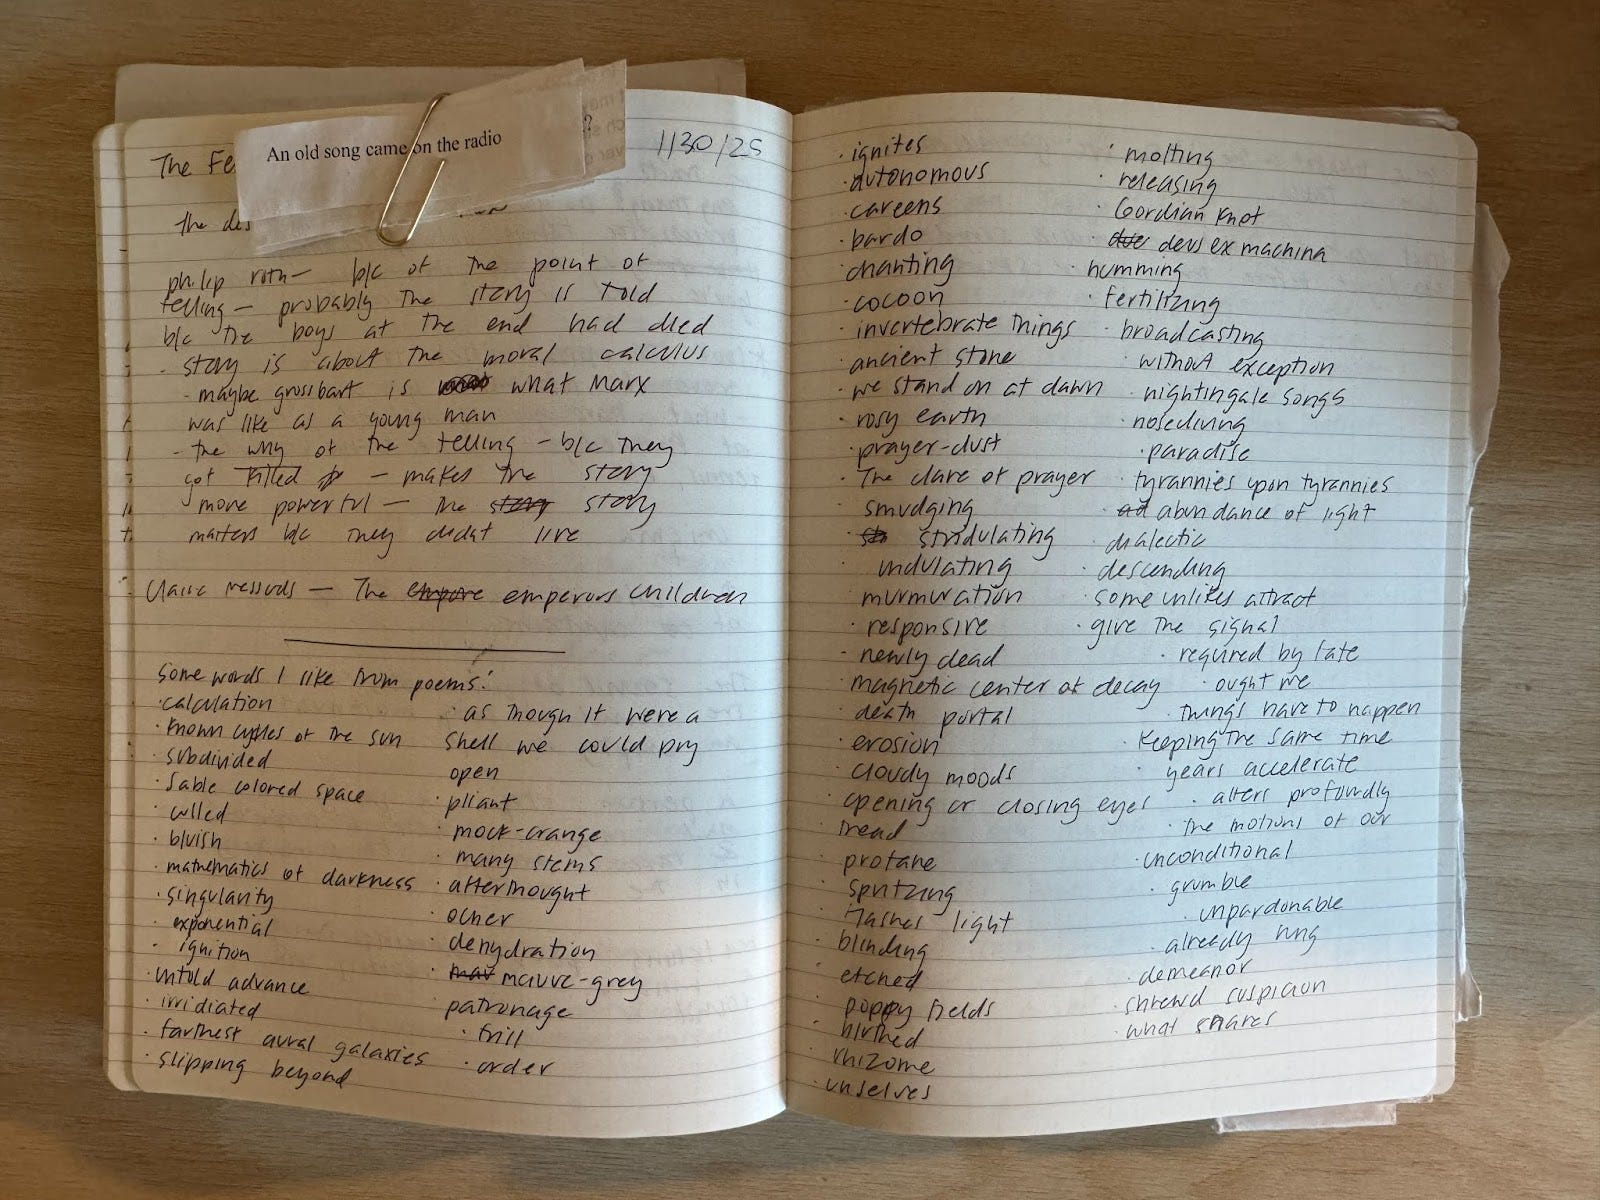 An old song came on the radio
?
The Fe
1/30/25
the des
philip roth — b/c of the point of
telling — probably the story is told
b/c the boys at the end had died
- story is about the moral calculus
- maybe grossbart is what Marx
was like as a young man
- the why of the telling — b/c they
got killed — makes the story
more powerful — the story story
matters b/c they didnt live
Claire Messuds — The empire emperors children
some words I like from poems:
· calculation
· known cycles of the sun
· subdivided
· sable colored space
· culled
· bluish
· mathematics of darkness
· singularity
· exponential
· ignition
· untold advance
· irridiated
· farthest aural galaxies
· slipping beyond
· as though it were a
shell we could pry
open
· pliant
· mock-orange
· many stems
· afterthought
· ocher
· dehydration
· mav mauve-grey
patronage
· trill
· order
· ignites
· autonomous
· careens
· bardo
· chanting
· cocoon
· invertebrate things
· ancient stone
· we stand on at dawn
· rosy earth
· prayer-dust
· The clare of prayer
· smudging
· stridulating
undulating
· murmuration
· responsive
· newly dead
· magnetic center of decay
· death portal
· erosion
· cloudy moods
· opening or closing eyes
· tread
· profane
· spritzing
· flashes light
· blinding
· etched
· poppy fields
· birthed
· rhizome
· unselves
· molting
· releasing
· Gordian knot
· due deus ex machina
· humming
· fertilizing
· broadcasting
· without exception
· nightingale songs
· nosediving
· paradise
· tyrannies upon tyrannies
· ad abundance of light
· dialectic
· descending
· some unlikes attract
· give the signal
· required by late
· ought we
· things have to happen
· keeping the same time
· years accelerate
· alters profoundly
· the motions of our
· unconditional
· grumble
· unpardonable
· already rung
· demeanor
· shrewd suspicion
· what shares